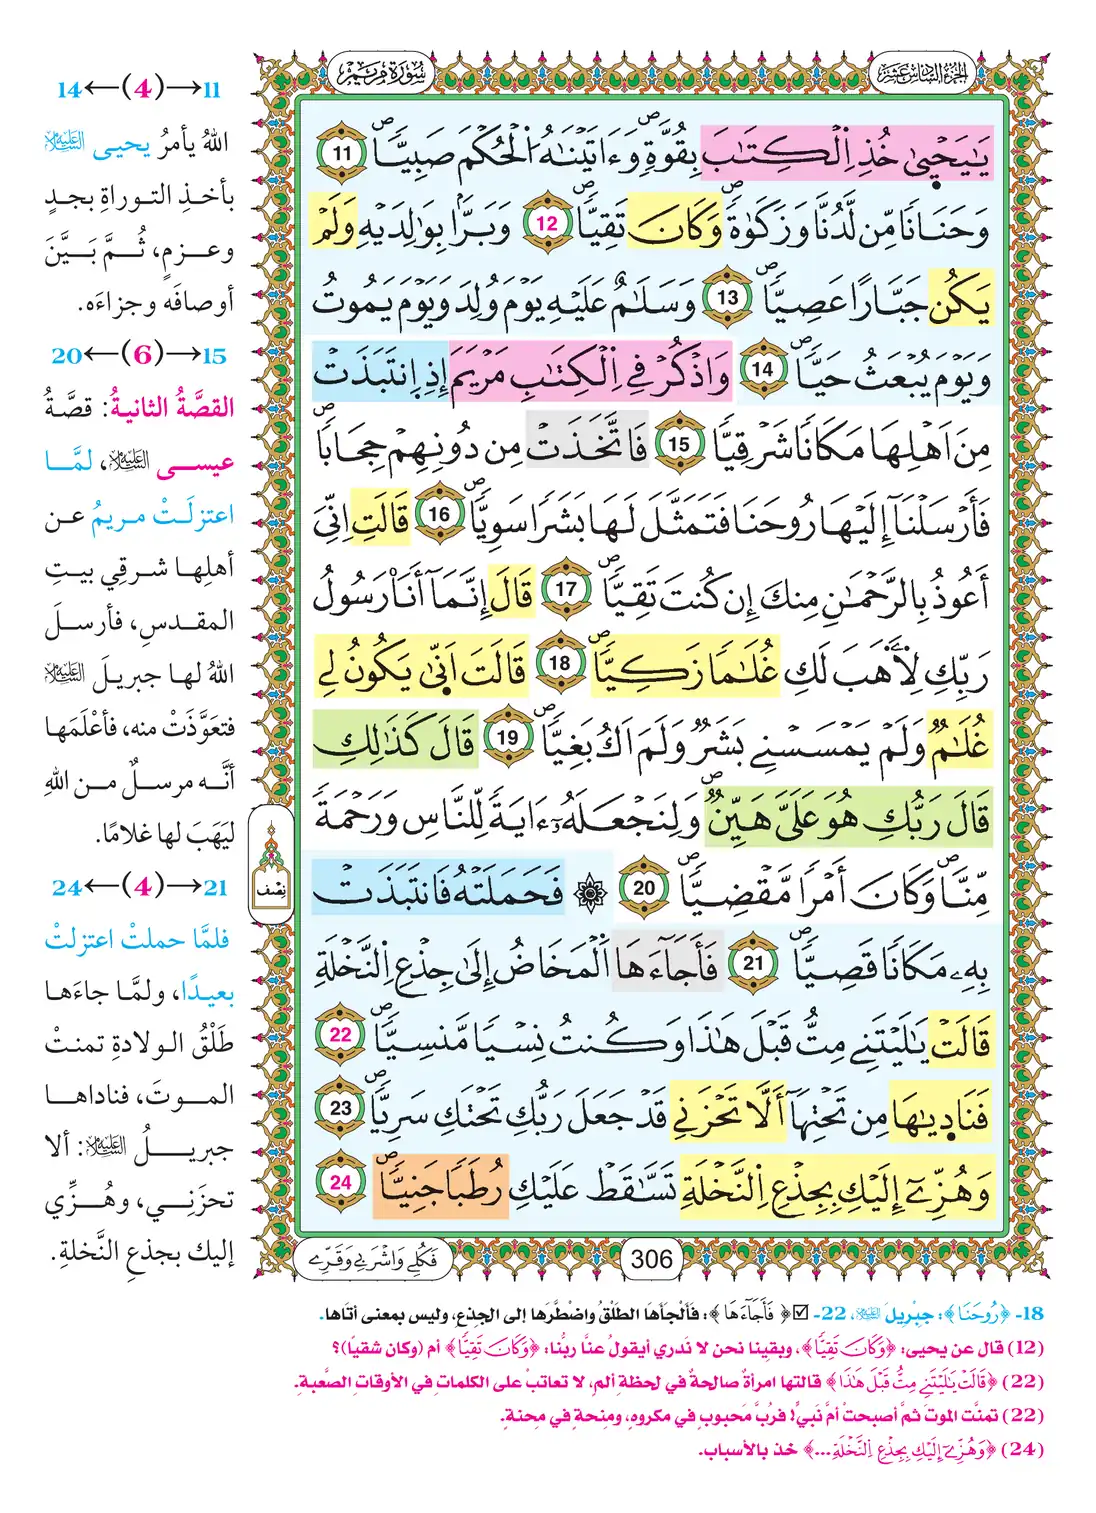 الجزء السادس عشر
سورة مريم
يَٰيَحْيىٰ خُذِ اِ۬لْكِتَٰبَ بِقُوَّةٖۖ وَءَاتَيْنَٰهُ اُ۬لْحُكْمَ صَبِيّاٗۖ 11
وَحَنَاناٗ مِّن لَّدُنَّا وَزَكَوٰةٗۖ وَكَانَ تَقِيّاٗۖ 12 وَبَرّاَۢ بِوَٰلِدَيْهِ وَلَمْ
يَكُن جَبَّاراً عَصِيّاٗۖ 13 وَسَلَٰمٌ عَلَيْهِ يَوْمَ وُلِدَ وَيَوْمَ يَمُوتُ
وَيَوْمَ يُبْعَثُ حَيّاٗۖ 14 وَاذْكُرْ فِے اِ۬لْكِتَٰبِ مَرْيَمَ إِذِ اِ۪نتَبَذَتْ
مِنَ اَهْلِهَا مَكَاناٗ شَرْقِيّاٗ 15 فَاتَّخَذَتْ مِن دُونِهِمْ حِجَاباٗۖ
فَأَرْسَلْنَآ إِلَيْهَا رُوحَنَا فَتَمَثَّلَ لَهَا بَشَراٗ سَوِيّاٗۖ 16 قَالَتِ اِنِّيَ
أَعُوذُ بِالرَّحْمَٰنِ مِنكَ إِن كُنتَ تَقِيّاٗۖ 17 قَالَ إِنَّمَآ أَنَا۠ رَسُولُ
رَبِّكِ لِأَهَبَ لَكِ غُلَٰماٗ زَكِيّاٗۖ 18 قَالَتَ اَنّىٰ يَكُونُ لِے
غُلَٰمٞ وَلَمْ يَمْسَسْنِے بَشَرٞ وَلَمَ اَكُ بَغِيّاٗۖ 19 قَالَ كَذَٰلِكِ
قَالَ رَبُّكِ هُوَ عَلَيَّ هَيِّنٞۖ وَلِنَجْعَلَهُۥٓ ءَايَةٗ لِّلنَّاسِ وَرَحْمَةٗ
مِّنَّاۖ وَكَانَ أَمْراٗ مَّقْضِيّاٗۖ 20 ۞ فَحَمَلَتْهُ فَانتَبَذَتْ
بِهِۦ مَكَاناٗ قَصِيّاٗۖ 21 فَأَجَآءَهَا اَ۬لْمَخَاضُ إِلَىٰ جِذْعِ اِ۬لنَّخْلَةِ
قَالَتْ يَٰلَيْتَنِے مِتُّ قَبْلَ هَٰذَا وَكُنتُ نِسْياٗ مَّنسِيّاٗۖ 22
فَنَادٜيٰهَا مِن تَحْتِهَآ أَلَّا تَحْزَنِے قَدْ جَعَلَ رَبُّكِ تَحْتَكِ سَرِيّاٗۖ 23
وَهُزِّےٓ إِلَيْكِ بِجِذْعِ اِ۬لنَّخْلَةِ تَسَّٰقَطْ عَلَيْكِ رُطَباٗ جَنِيّاٗۖ 24
306
فَكُلِے وَاشْرَبِے وَقَرِّے
نصف
11→(4)←14
اللهُ يأمرُ يحيى عليه السلام
بأخذِ التوراةِ بجدٍ
وعزمٍ، ثُمَّ بَيَّنَ
أوصافَه وجزاءَه.
15→(6)←20
القصَّةُ الثانيةُ: قصَّةُ
عيسى عليه السلام، لمَّا
اعتزلَتْ مريمُ عن
أهلِها شرقِي بيتِ
المقدسِ، فأرسلَ
اللهُ لها جبريلَ عليه السلام
فتعَوَّذَتْ منه، فأعْلَمَها
أنَّه مرسلٌ من اللهِ
ليَهَبَ لها غلامًا.
21→(4)←24
فلمَّا حملتْ اعتزلتْ
بعيدًا، ولمَّا جاءَها
طَلْقُ الولادةِ تمنتْ
الموتَ، فناداها
جبريلُ عليه السلام: ألا
تحزَنِي، وهُزِّي
إليك بجذعِ النَّخلةِ.
18- ﴿رُوحَنَا﴾: جِبْرِيلَ عليه السلام، 22- ☑ ﴿فَأَجَآءَهَا﴾: فَأَلْجَأَهَا الطَلْقُ وَاضْطَرَّها إلى الجِذعِ، وليس بمعنى أتَاها.
(12) قال عن يحيى: ﴿وَكَانَ تَقِيّٗا﴾، وبقينا نحن لا نَدري أيقولُ عنَّا ربُّنا: ﴿وَكَانَ تَقِيّٗا﴾ أم (وكان شقيًا)؟
(22) ﴿قَالَتْ يَٰلَيْتَنِے مِتُّ قَبْلَ هَٰذَا﴾ قالتها امرأةٌ صالحةٌ في لحظةِ ألمٍ، لا تعاتبْ على الكلماتِ في الأوقاتِ الصَّعبةِ.
(22) تمنَّت الموتَ ثمَّ أصبحتْ أمَّ نَبيٍّ! فرُبَّ مَحبوبٍ في مكروهٍ، ومنِحةٍ في مِحنةٍ.
(24) ﴿وَهُزِّےٓ إِلَيْكِ بِجِذْعِ اِ۬لنَّخْلَةِ ...﴾ خذ بالأسبابِ.